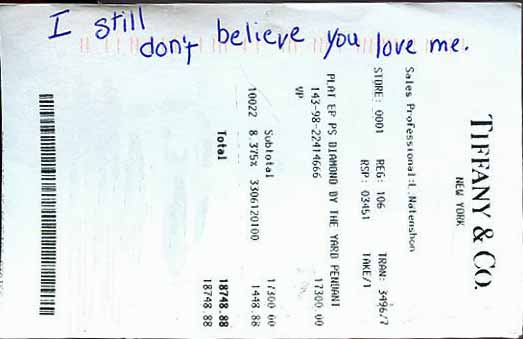 I still
don't believe you love me.
TIFFANY & CO.
NEW YORK
Sales Professional:L.Natenshon
STORE: 0001 REG: 106 TRAN: 3496/7
RSP: 03451 TAKE/1
PLAT EP PS DIAMOND BY THE YARD PENDANT
143-98-22414666 17300.00
VP
Subtotal 17300.00
10022 8.375% 3306120100 1448.88
Total 18748.88
18748.88